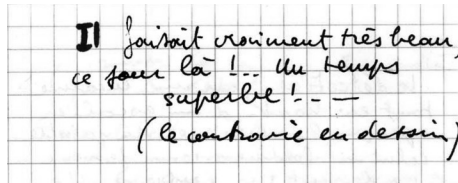 Il faisait vraiment très beau,
ce jour là !... Un temps
superbe !.. —
(le contraire en dessin)